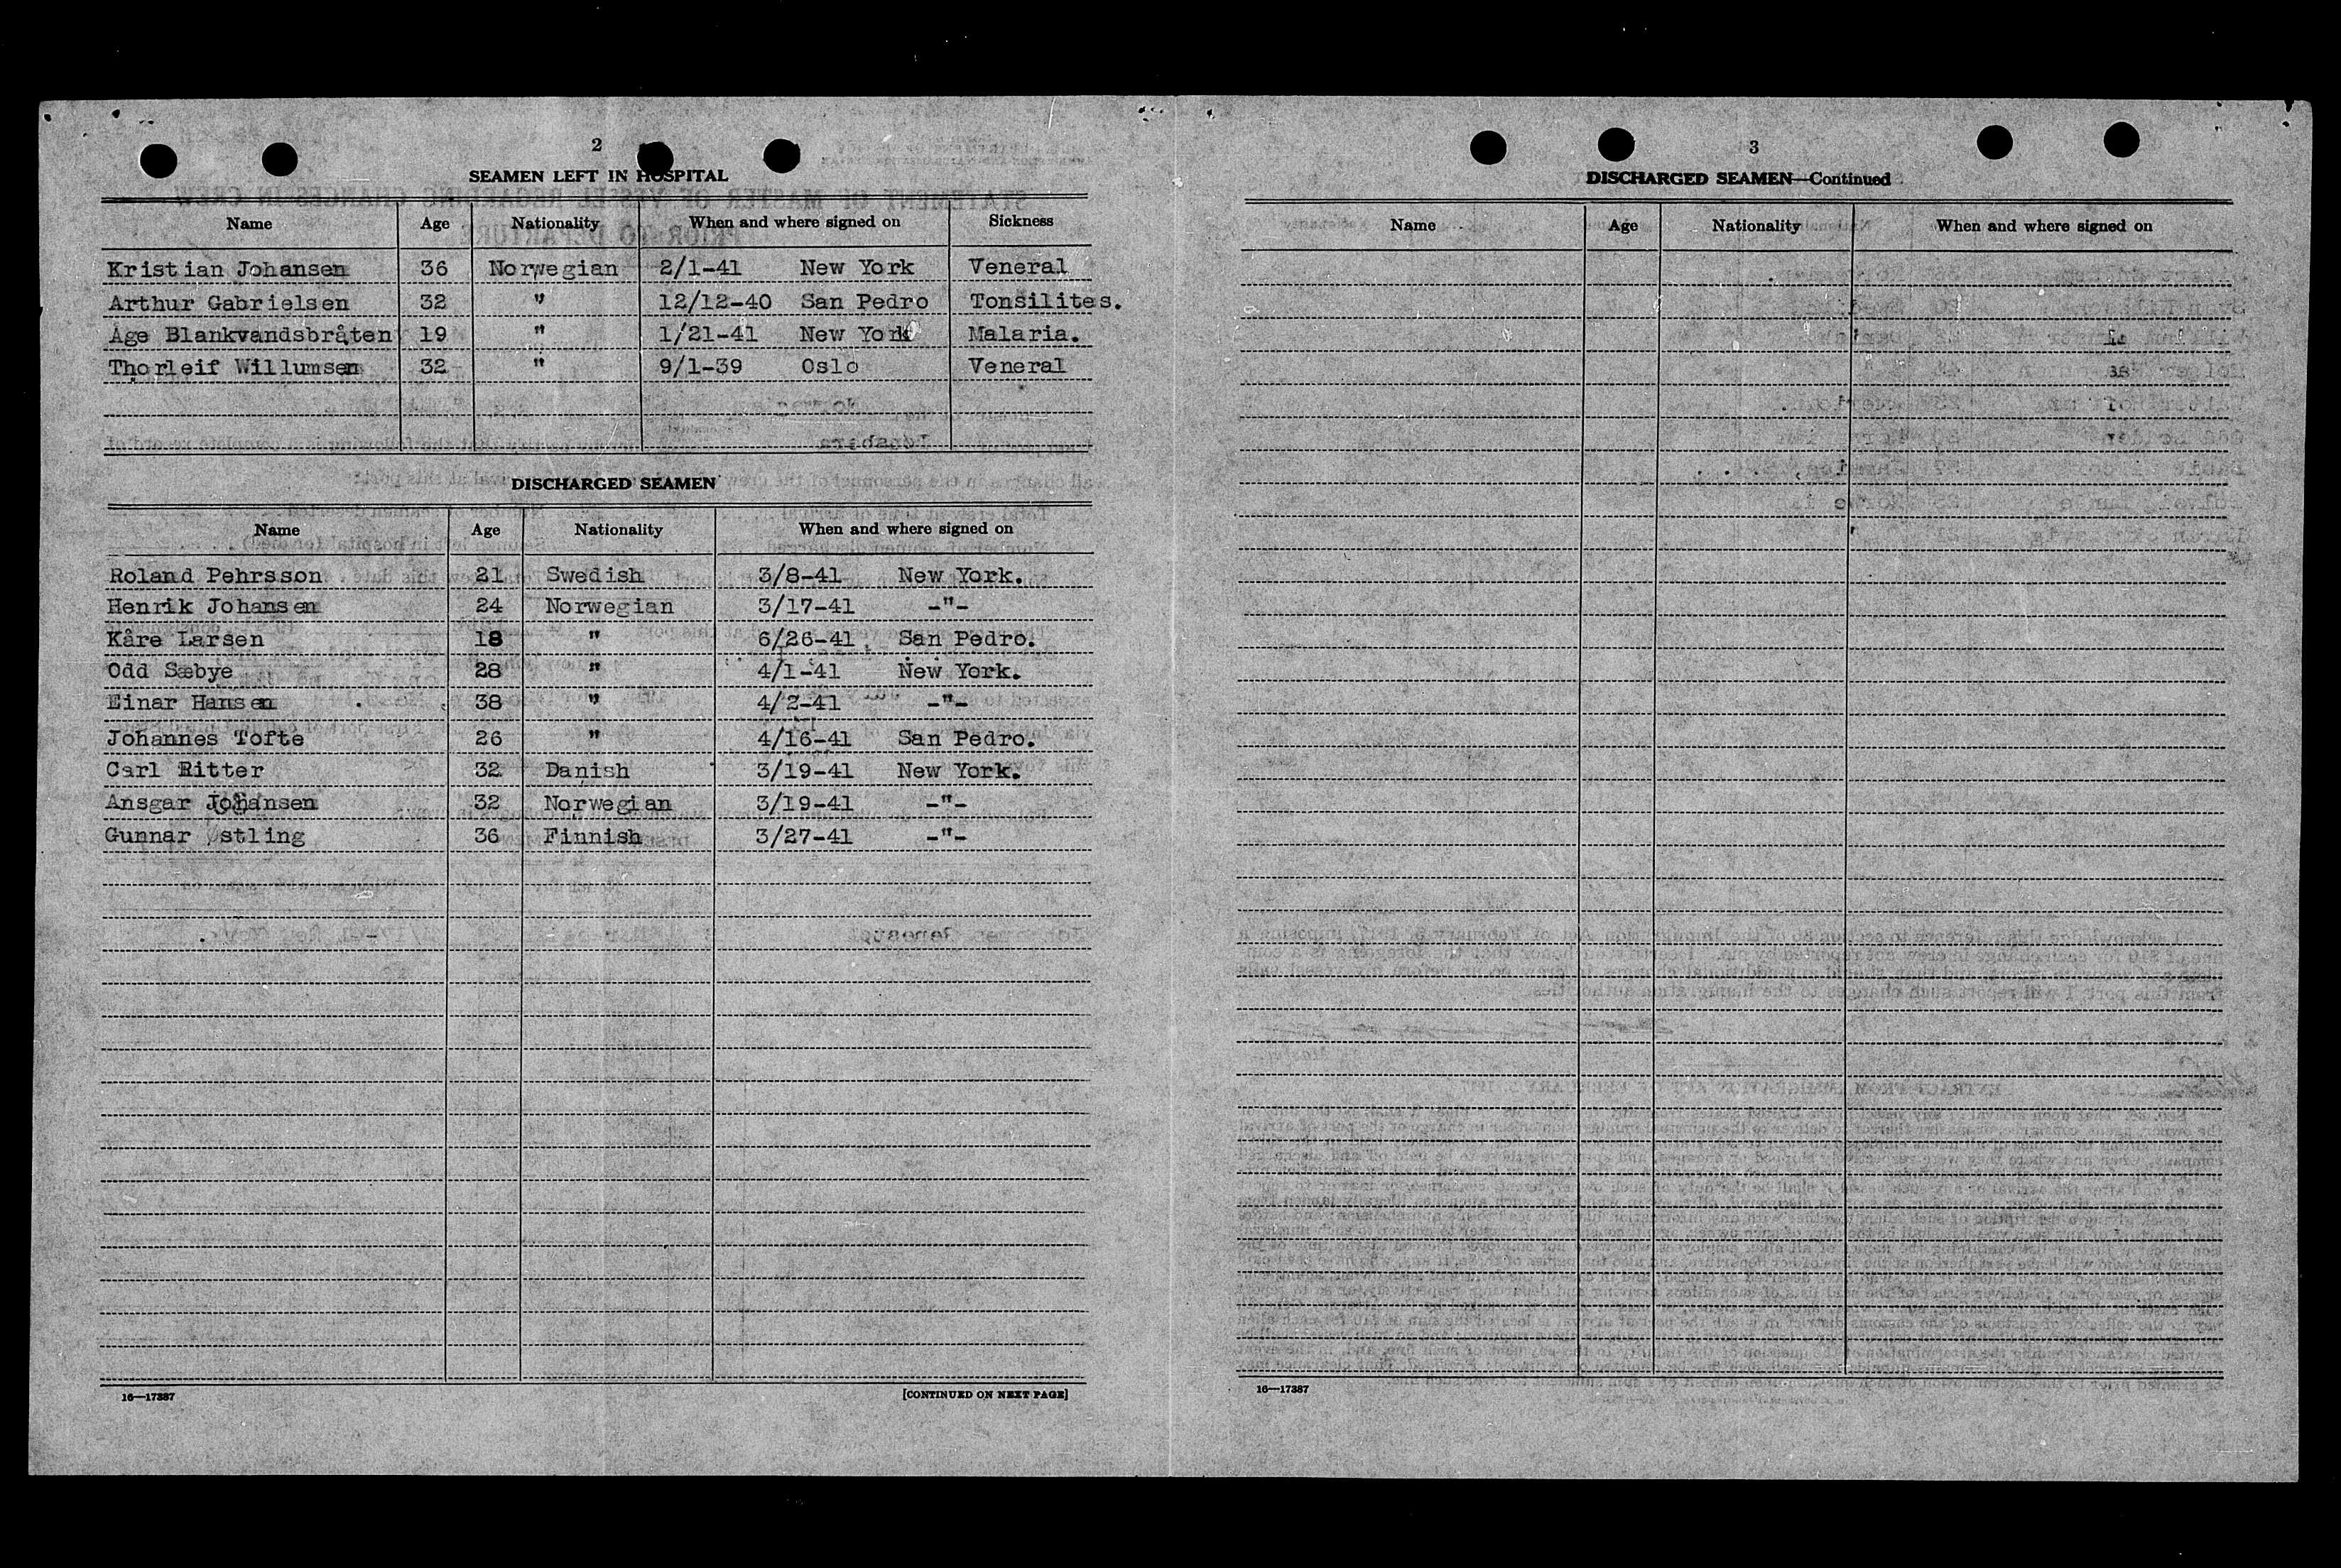 2
SEAMEN LEFT IN HOSPITAL
Name Age Nationality When and where signed on Sickness
Kristian Johansen 36 Norwegian 2/1-41 New York Veneral
Arthur Gabrielsen 32 " 12/12-40 San Pedro Tonsilites.
Åge Blankvandsbråten 19 " 1/21-41 New York Malaria.
Thorleif Willumsen 32 " 9/1-39 Oslo Veneral
DISCHARGED SEAMEN
Name Age Nationality When and where signed on
Roland Pehrsson 21 Swedish 3/8-41 New York.
Henrik Johansen 24 Norwegian 3/17-41 -"-
Kåre Larsen 18 " 6/26-41 San Pedro.
Odd Sæbye 28 " 4/1-41 New York.
Einar Hansen 38 " 4/2-41 -"-
Johannes Tofte 26 " 4/16-41 San Pedro.
Carl Ritter 32 Danish 3/19-41 New York.
Ansgar Johansen 32 Norwegian 3/19-41 -"-
Gunnar Østling 36 Finnish 3/27-41 -"-
16—17387 [CONTINUED ON NEXT PAGE]
3
DISCHARGED SEAMEN—Continued
Name Age Nationality When and where signed on
16—17387